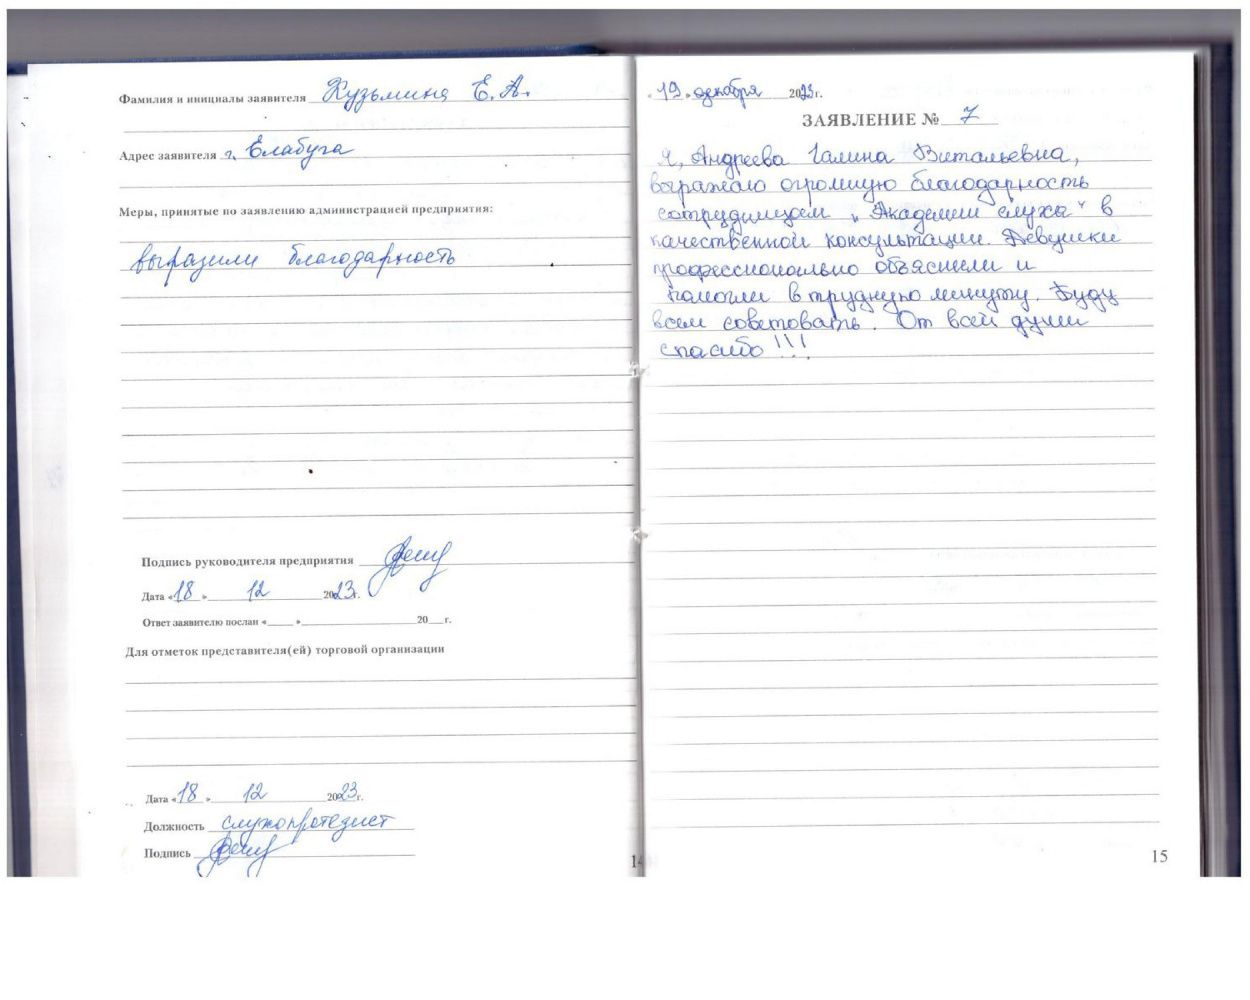 Фамилия и инициалы заявителя Кузьмина Е. А.
Адрес заявителя г. Елабуга
Меры, принятые по заявлению администрацией предприятия:
выразили благодарность
Подпись руководителя предприятия
Дата «18» 12 2023г.
Ответ заявителю послан «____ »____ 20__г.
Для отметок представителя(ей) торговой организации
Дата «18 » 12 2023г.
Должность слухопротезист
Подпись
14
«19» декабря 2023г.
ЗАЯВЛЕНИЕ № 7
Я, Андреева Галина Витальевна,
выражаю огромную благодарность
сотрудницам „Академии слуха" в
качественной консультации. Девушки
профессионально объяснили и
помогли в трудную минуту. Буду
всем советовать. От всей души
спасибо!!!
15